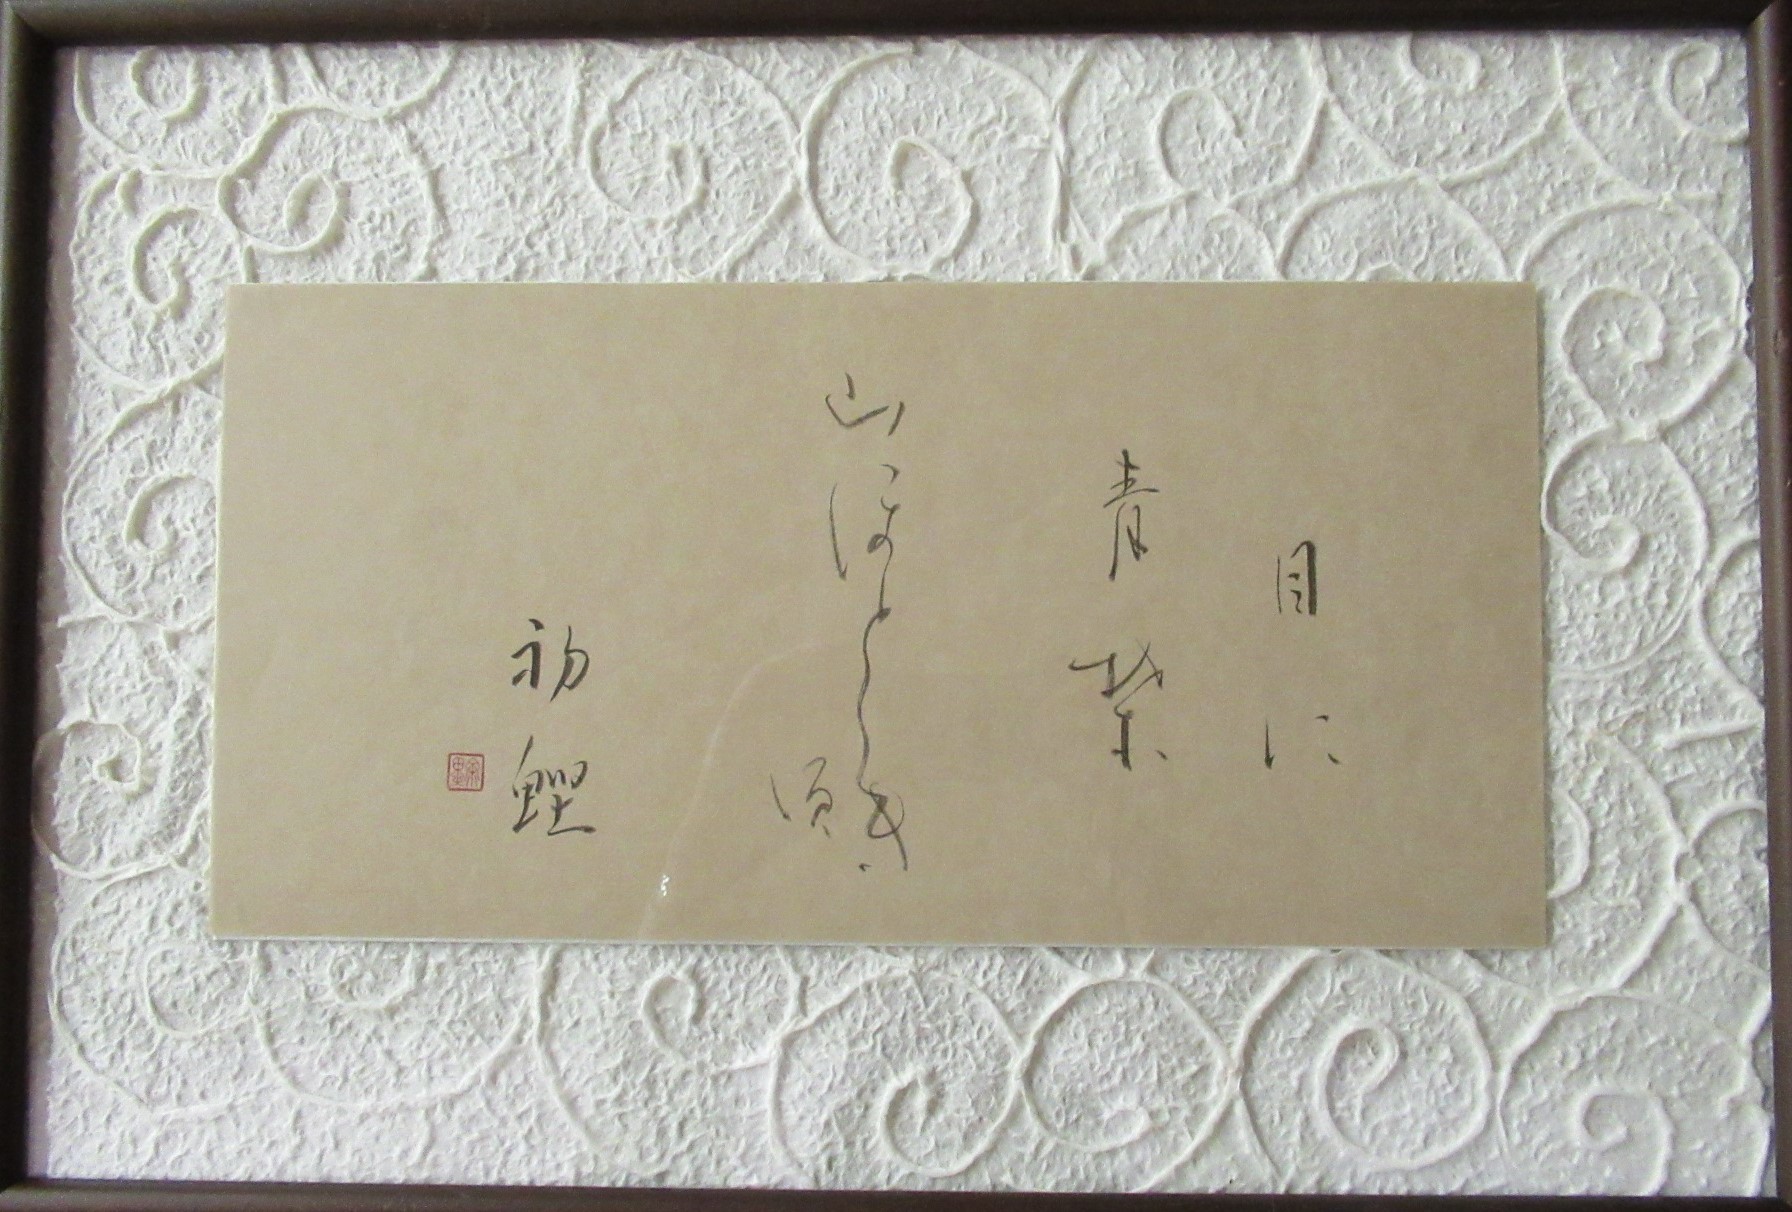 目に
青葉
山ほとゝき
須
初鰹